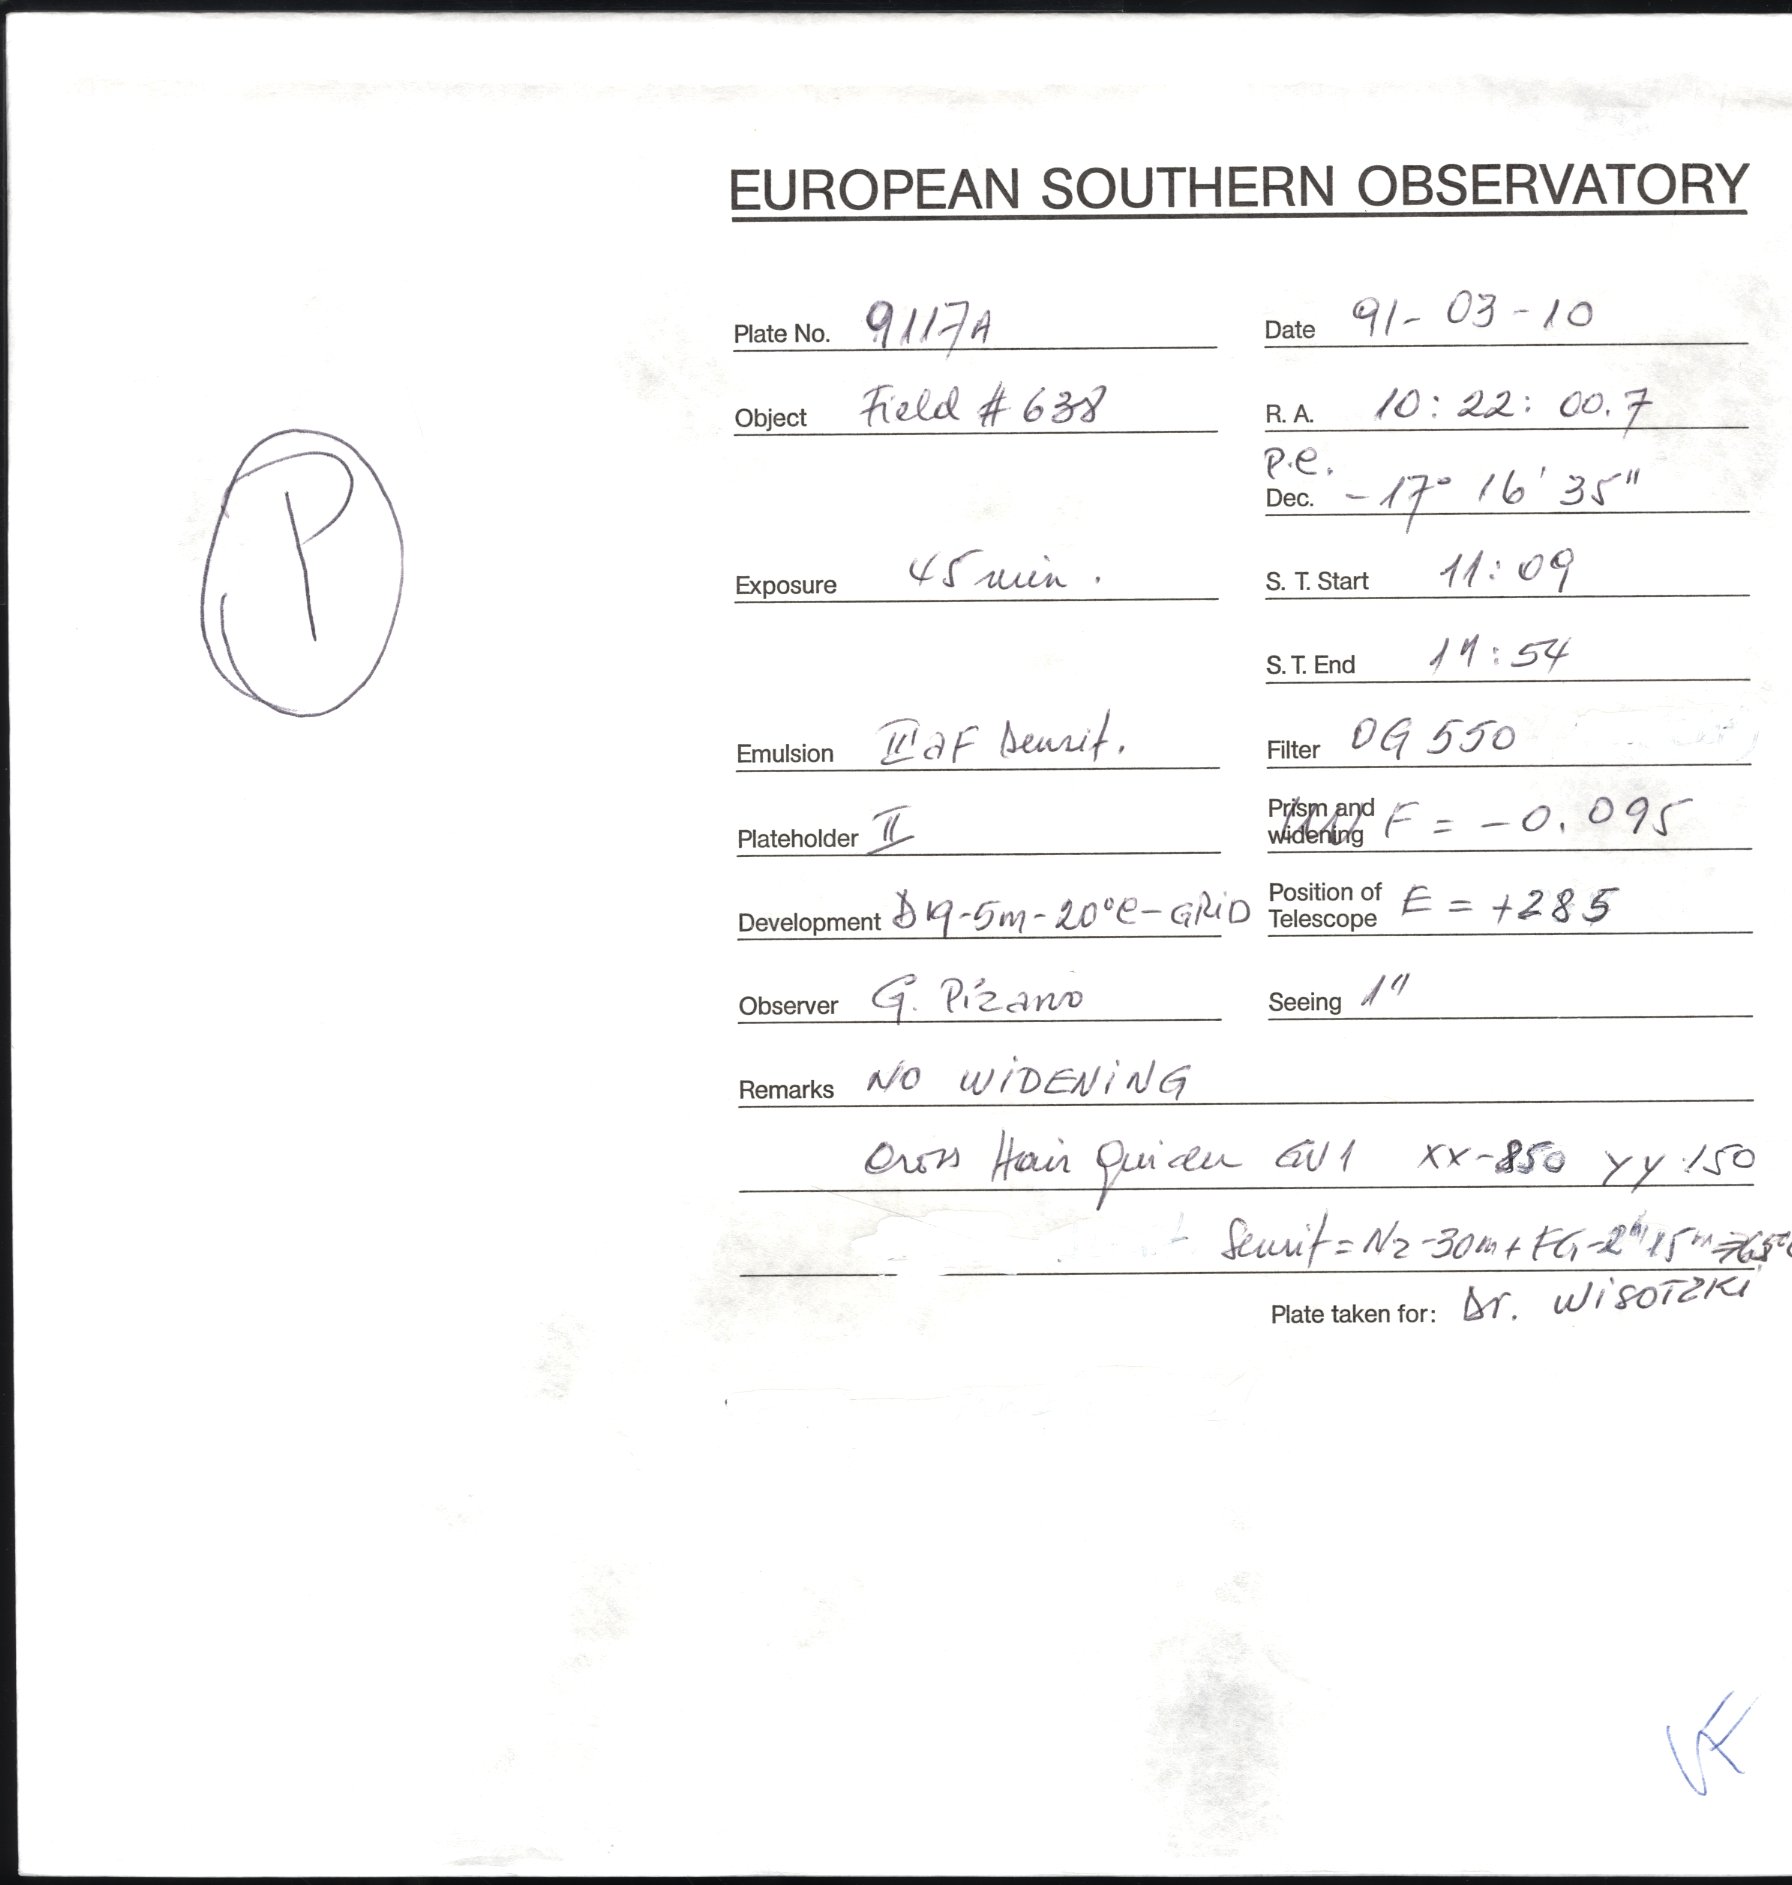 EUROPEAN SOUTHERN OBSERVATORY
Plate No. 9117A Date 91-03-10
Object Field # 638 R. A. 10:22:00.7
P.e.
Dec. -17° 16' 35"
Exposure 45 min. S. T. Start 11:09
P
S. T. End 11:54
Emulsion IIIaF Sensit. Filter OG 550
Plateholder II Prism and widening F = -0.095
Development D19-5m-20°C-GRiD Position of Telescope E = +285
Observer G. Pizarro Seeing 1"
Remarks NO WiDENiNG
Cross Hair Guider GV1 XX-850 YY 150
Sensit = N2-30m + FG-2h 15m 65°C
Plate taken for: Dr. WiSOTZKI
VF